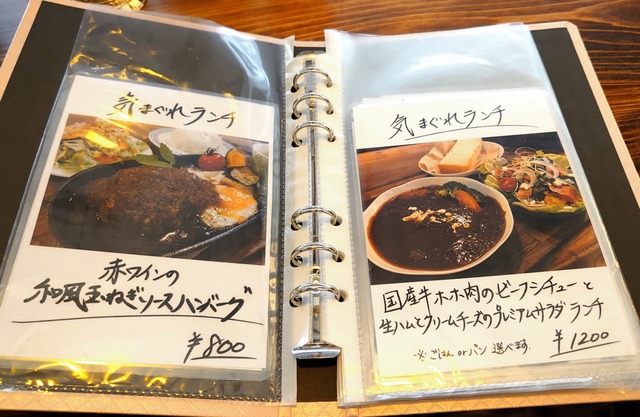 気まぐれランチ
赤ワインの
和風玉ねぎソースハンバーグ
¥800
気まぐれランチ
国産牛ホホ肉のビーフシチューと
生ハムとクリームチーズのプレミアムサラダランチ
※ごはん or パン 選べます。
¥1200